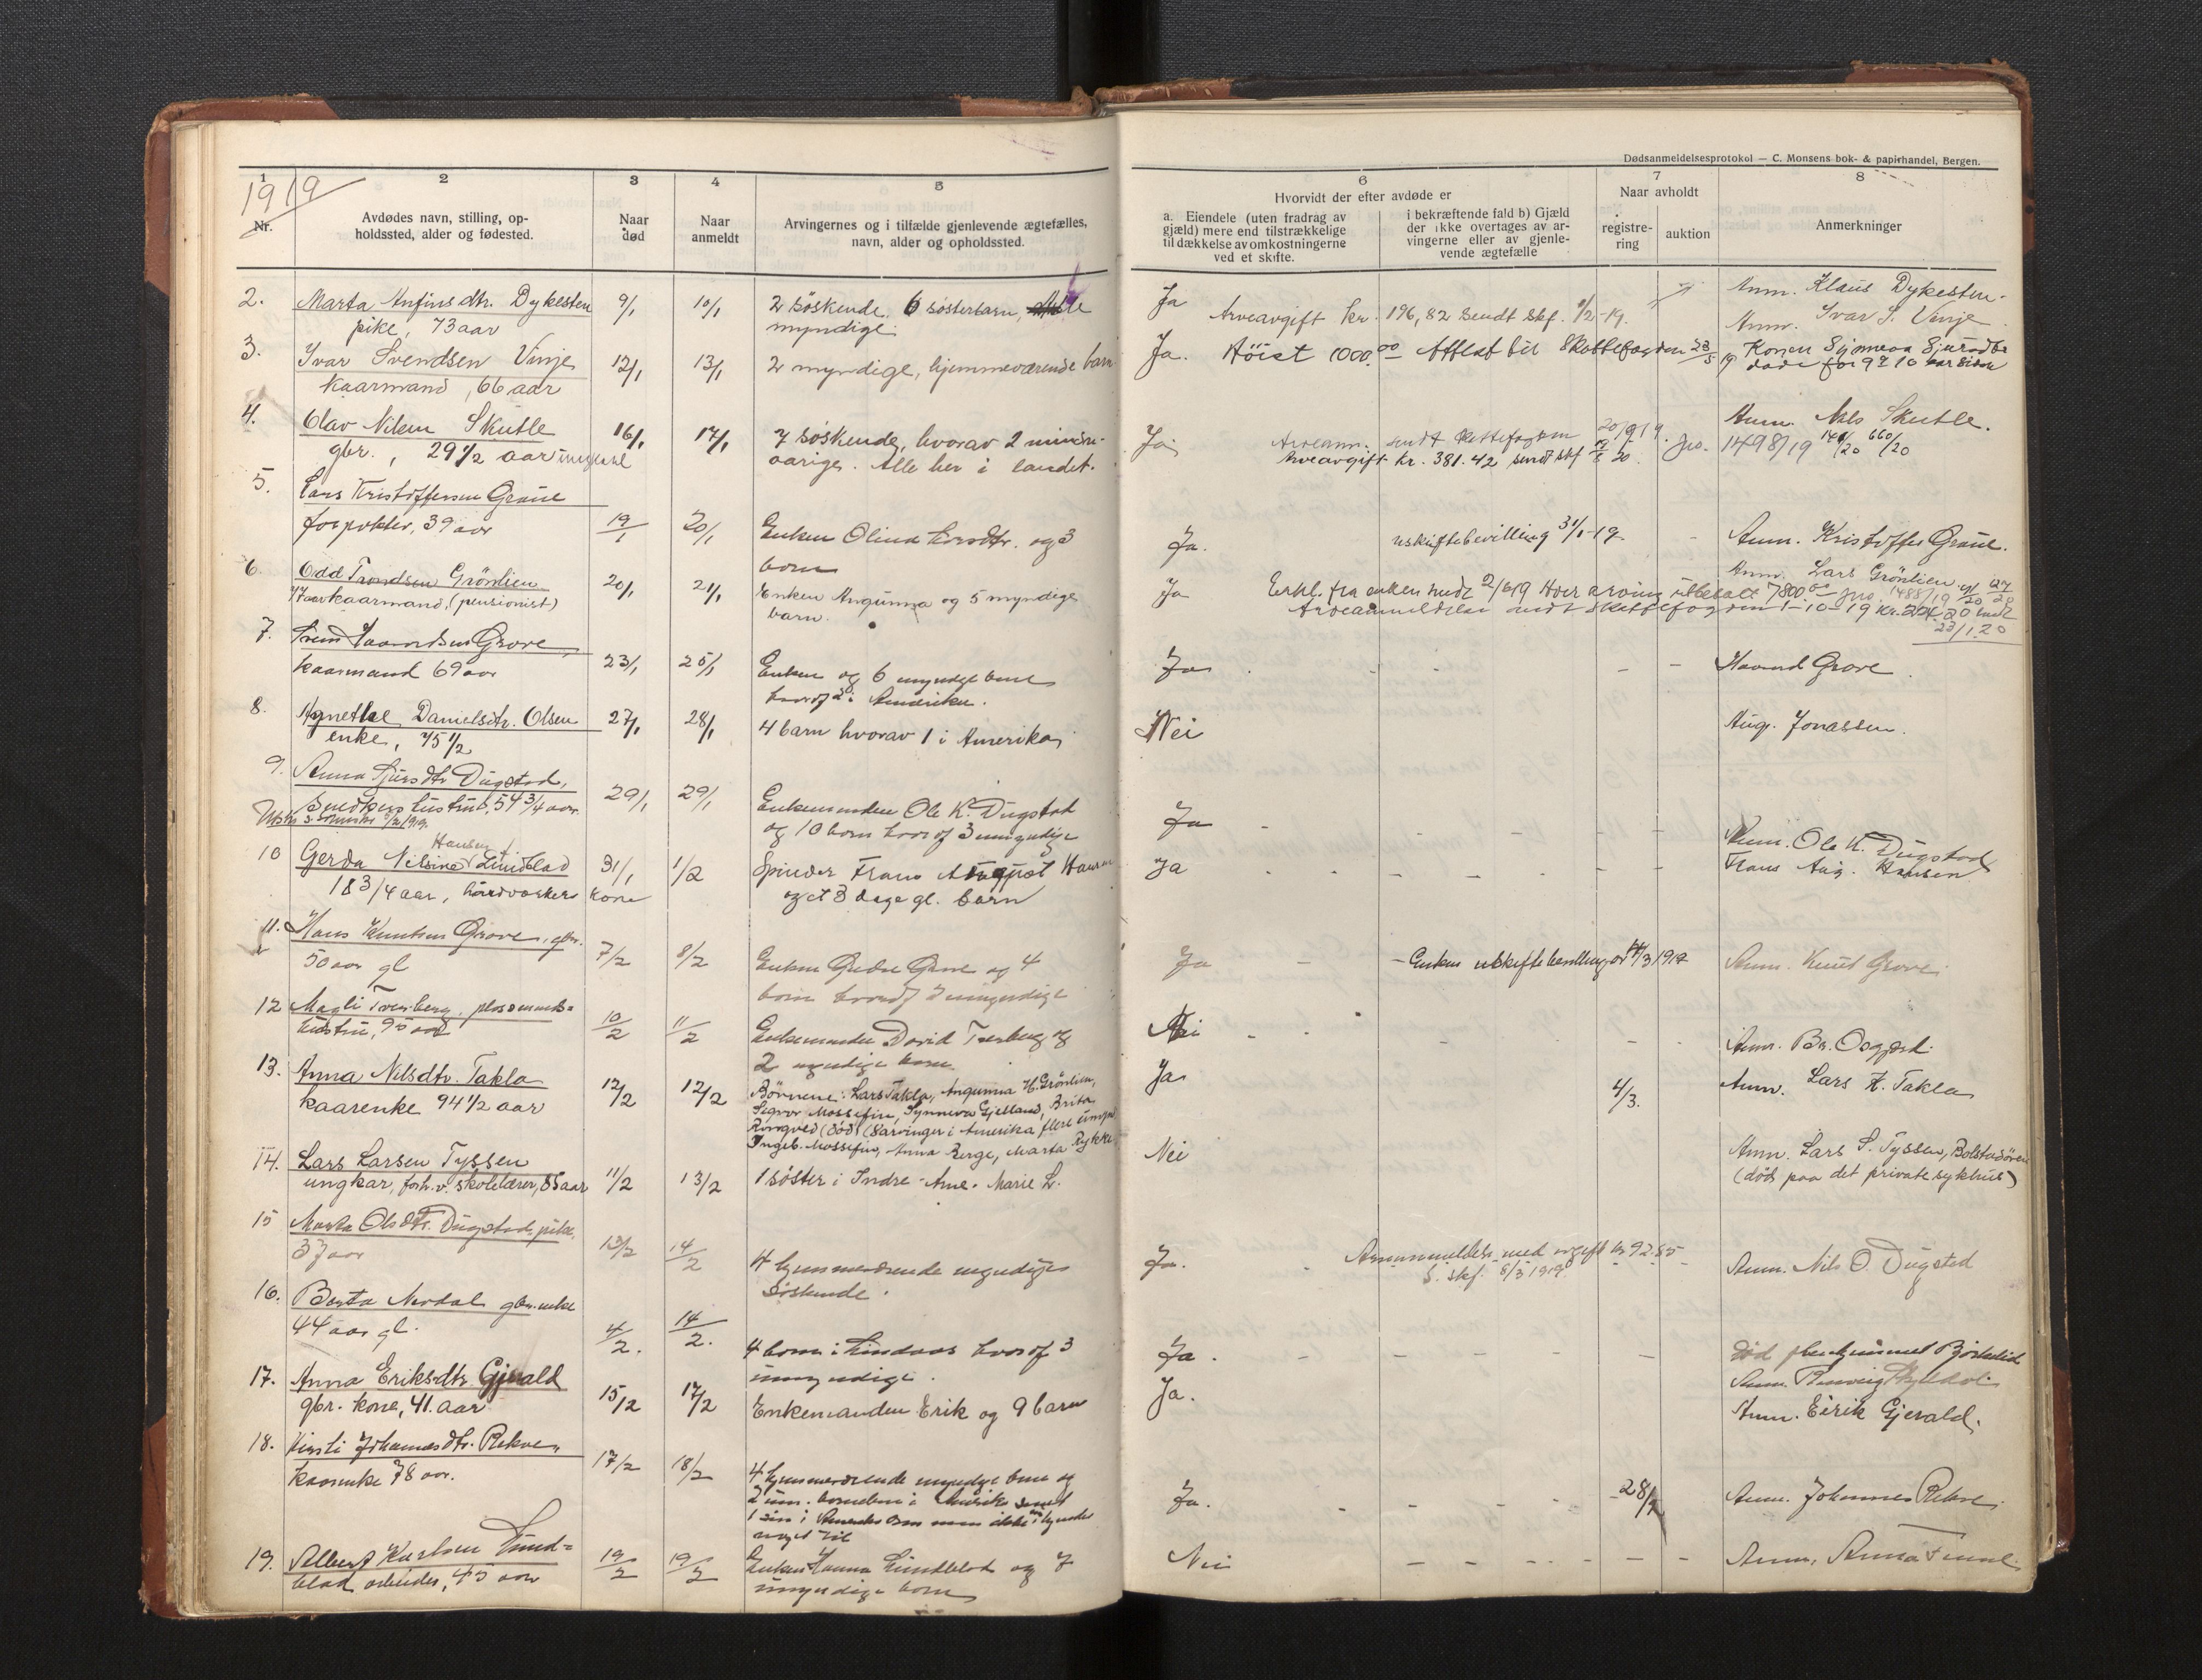 Dødsanmeldelsesprotokol — C. Monsens bok- & papirhandel, Bergen.
1919
1
2
3
4
5
6
7
8
Nr.
Avdødes navn, stilling, op-
holdssted, alder og fødested.
Naar
død
Naar
anmeldt
Arvingernes og i tilfælde gjenlevende ægtefælles,
navn, alder og opholdssted.
Hvorvidt der efter avdøde er
a. Eiendele (uten fradrag av
gjæld) mere end tilstrækkelige
til dækkelse av omkostningerne
ved et skifte.
i bekræftende fald b) Gjæld
der ikke overtages av ar-
vingerne eller av gjenle-
vende ægtefælle
Naar avholdt
registre-
ring
auktion
Anmerkninger
2. Marta Anfinsdtr. Dykesten
pike, 73 aar
9/1 10/1
2 søskende, 6 søsterbarn, alle
myndige.
Ja
Arveavgift kr. 196,82 sendt skf. 1/2-19.
Anm. Klaus Dykesten.
3. Ivar Svendsen Vinje
kaarmand, 66 aar
12/1 13/1
2 myndige, hjemmeværende barn
Ja. Høist 1000.00 Attest til Skattefogden 28/5 19
Anm. Ivar S. Vinje.
Konen Synneva Sjursdtr
døde for 9 à 10 aar siden
4. Olav Nilsen Skutle
gbr., 29 1/2 aar ungkarl
16/1 17/1
7 søskende, hvorav 2 mindre-
aarige. Alle her i landet.
Ja
Arveanm. sendt skattefogden 20/9 19.
Arveavgift kr. 381.42 sendt skf 19/8 20.
Anm. Nils Skutle.
Jno. 1498/19
5. Lars Kristoffersen Graue
forpakter, 39 aar
19/1 20/1
Enken Olina Larsdtr. og 3
barn
Ja.
uskiftebevilling 31/1-19
Anm. Kristoffer Graue.
6. Odd Trondsen Grönlien
77 aar kaarmand, (pensionist)
20/1 21/1
Enken Angunna og 5 myndige
barn.
Ja
Erkl. fra enken sendt 2/6 19 Hver arving utbetalt 7800.00 Jno. 1488/19
Arveanmeldelse sendt skattefogden 1-10-19
23/1 20
Anm. Lars Grönlien
7. Svend Haavardsen Grove
kaarmand 69 aar
23/1 25/1
Enken og 6 myndige barn
hvoraf 2 i Amerika.
Ja
Haavard Grove.
8. Agnethe Danielsdtr. Olsen
enke, 75 1/2
27/1 28/1
4 barn hvorav 1 i Amerika
Nei
Aug. Jonassen.
9. Anna Sjursdtr Dugstad,
hustru, 54 3/4 aar
29/1 29/1
Enkemanden Ole K. Dugstad
og 10 barn hvoraf 3 umyndige
Ja
Anm. Ole K. Dugstad
10 Gerda Nilsine Lundblad
Hansen f.
18 3/4 aar, kone
31/1 1/2
Spinder Frans August Hansen
og et 3 dage gl. barn
Ja
Frans Aug. Hansen
11. Hans Knutsen Grove, gbr.
50 aar gl
7/2 8/2
Enken Gudve Grove og 4
barn hvoraf 3 umyndige
Ja
Enken uskiftebevilling 1919
Anm. Knut Grove.
12 Magli Tverberg, plassmands-
hustru, 95 aar
10/2 11/2
Enkemanden David Tverberg og
2 myndige barn
Nei
Anm. Br. Osgjerd.
13. Anna Nilsdtr. Takla
kaarenke 94 1/2 aar
12/2 12/2
Börnene: Lars Takla, Angunna H. Grönlien,
Sigvor Mossefin, Synneva Gjelland, Brita
Ringved (död) (8 arvinger i Amerika flere umyn.
Ingeb. Mossefin, Anna Berge, Marta Rykke
Ja
4/3.
Anm. Lars K. Takla
14. Lars Larsen Tyssen
ungkar, forh.v. skolelærer, 85 aar
11/2 13/2
1 söster i Indre-Arne. Marie L.
Nei
Anm. Lars S. Tyssen, Bolstadören
(död paa det private sykhus)
15 Marta Olsdtr. Dugstad, pike,
37 aar
13/2 14/2
4 hjemmeværende myndige
söskende.
Ja.
Arveanmeldelse med avgift kr 92.85
S. skf. 8/3 1919
Anm. Nils O. Dugstad
16. Berta Nerdal gbr.enke
44 aar gl.
4/2. 14/2.
4 barn i Lindaas hvoraf 3
umyndige.
Ja.
Död pleiehjemmet Björkelid
17. Anna Eriksdtr. Gjerald
gbr. kone, 41. aar
15/2 17/2
Enkemanden Erik og 9 barn
Ja.
Anm. Eirik Gjerald.
18. Kirsti Johannesdtr. Rekve,
kaarenke 78 aar.
17/2 18/2
4 hjemmeværende myndige barn og
2 barnebarn i Amerika samt
1 sön i Amerika som man ikke kjender
noget til
Ja.
28/2
Anm. Johannes Rekve
19. Albert Karlsen Lund-
blad arbeider, 45 aar
19/2 19/2
Enken Hanna Lundblad og 7
umyndige barn
Nei